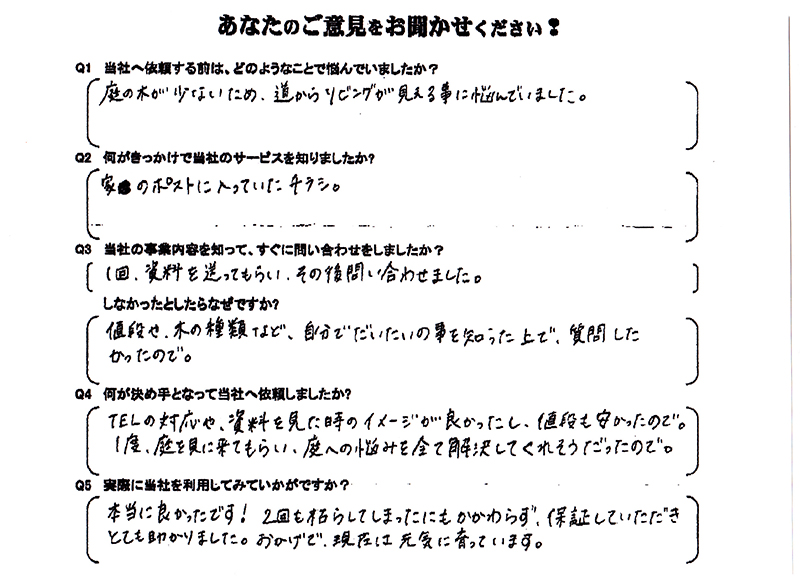 あなたのご意見をお聞かせください!
Q1 当社へ依頼する前は、どのようなことで悩んでいましたか?
庭の木が少ないため、道からリビングが見える事に悩んでいました。
Q2 何がきっかけで当社のサービスを知りましたか?
家のポストに入っていたチラシ。
Q3 当社の事業内容を知って、すぐに問い合わせをしましたか?
1回、資料を送ってもらい、その後問い合わせました。
しなかったとしたらなぜですか?
値段や、木の種類など、自分でだいたいの事を知った上で、質問した
かったので。
Q4 何が決め手となって当社へ依頼しましたか?
TELの対応や、資料を見た時のイメージが良かったし、値段も安かったので。
1度、庭を見に来てもらい、庭への悩みを全て解決してくれそうだったので。
Q5 実際に当社を利用してみていかがですか?
本当に良かったです! 2回も枯らしてしまったにもかかわらず、保証していただき
とても助かりました。おかげで、現在は元気に育っています。